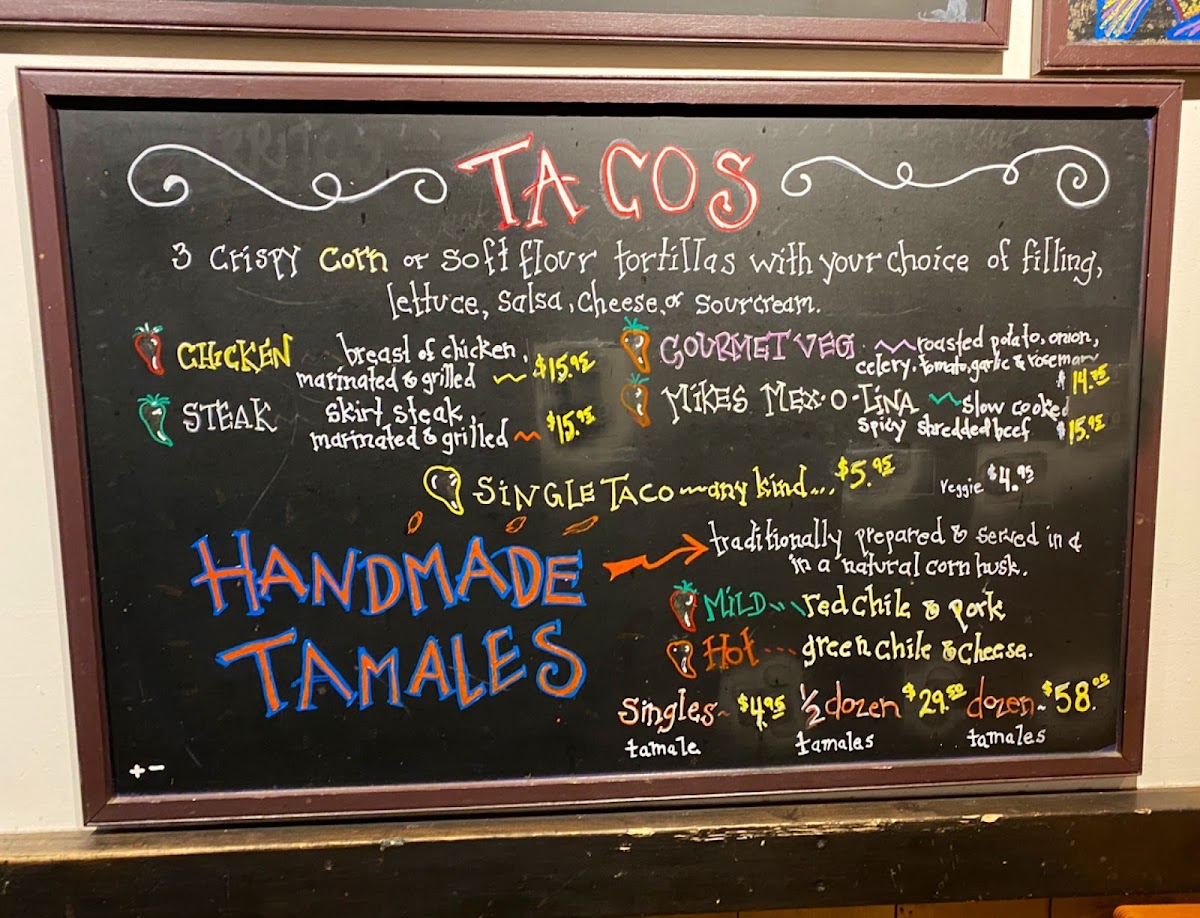 TACOS
3 Crispy Corn or soft flour tortillas with your choice of filling,
lettuce, salsa, cheese, or sourcream.
CHICKEN breast of chicken,
marinated & grilled $15.95
STEAK skirt steak,
marinated & grilled $15.95
GOURMET VEG roasted potato, onion,
celery, tomato, garlic & rosemary
$14.95
MIKES MEX-O-LINA slow cooked
spicy shredded beef $15.95
SINGLE TACO any kind... $5.95 Veggie $4.95
HANDMADE
TAMALES
traditionally prepared & served in a
in a natural corn husk.
MILD red chile & pork
HOT... green chile & cheese.
Singles $4.95 1/2 dozen $29.50 dozen $58.00
tamale tamales tamales
+-